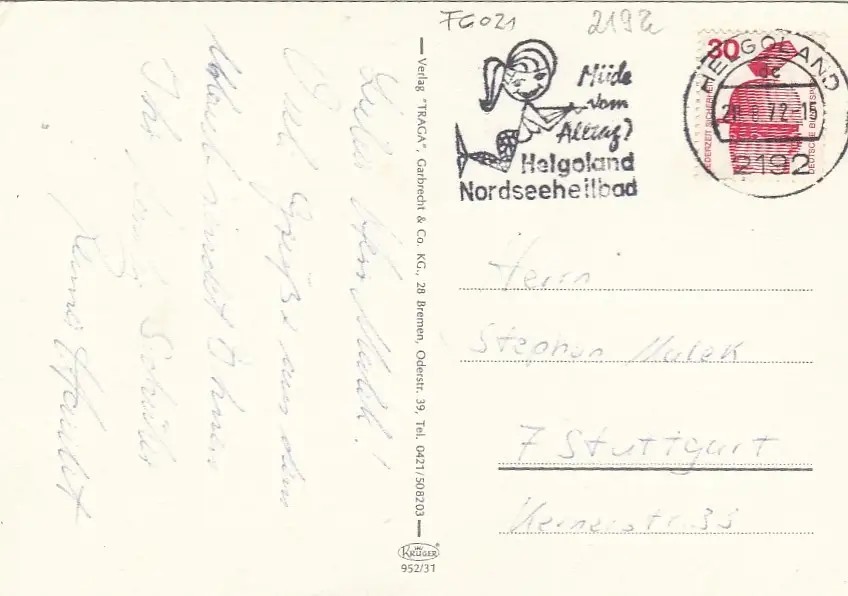 FG021
2192
Müde
vom
Alltag?
Helgoland
Nordseeheilbad
30
HELGOLAND
72-15
2192
JEDERZEIT SICHERHEIT
DEUTSCHE BUNDESPOST
Lieber Herr Malek!
Viele Grüße aus dem
Urlaub sendet Ihnen
Ihr Schüler
Verlag "TRAGA", Garbrecht & Co. KG., 28 Bremen, Oderstr. 39, Tel. 0421/508203
Herrn
Stephan Malek
7 Stuttgart
Kernerstr. 33
KRÜGER
952/31